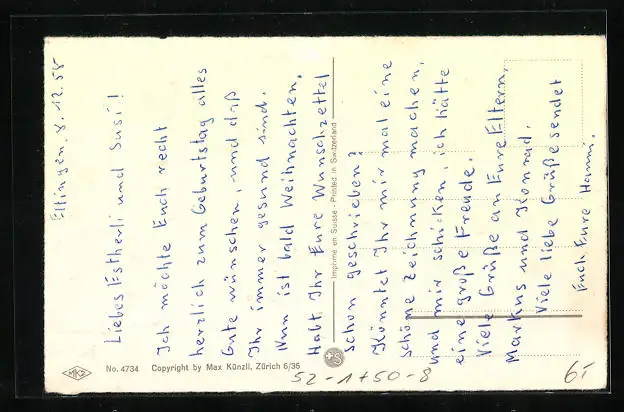 Ettingen. 8. 12. 58
Liebes Estherli und Susi!
Ich möchte Euch recht
herzlich zum Geburtstag alles
Gute wünschen, und daß
Ihr immer gesund sind.
Nun ist bald Weihnachten.
Habt Ihr Eure Wunschzettel
schon geschrieben?
Könntet Ihr mir mal eine
schöne Zeichnung machen,
und mir schicken, ich hätte
eine große Freude.
Viele Grüße an Eure Eltern,
Markus und Konrad.
Viele liebe Grüße sendet
Euch Eure Hanni.
Imprimé en Suisse - Printed in Switzerland
MKZ
No. 4734 Copyright by Max Künzli, Zürich 6/35
52-1750-8